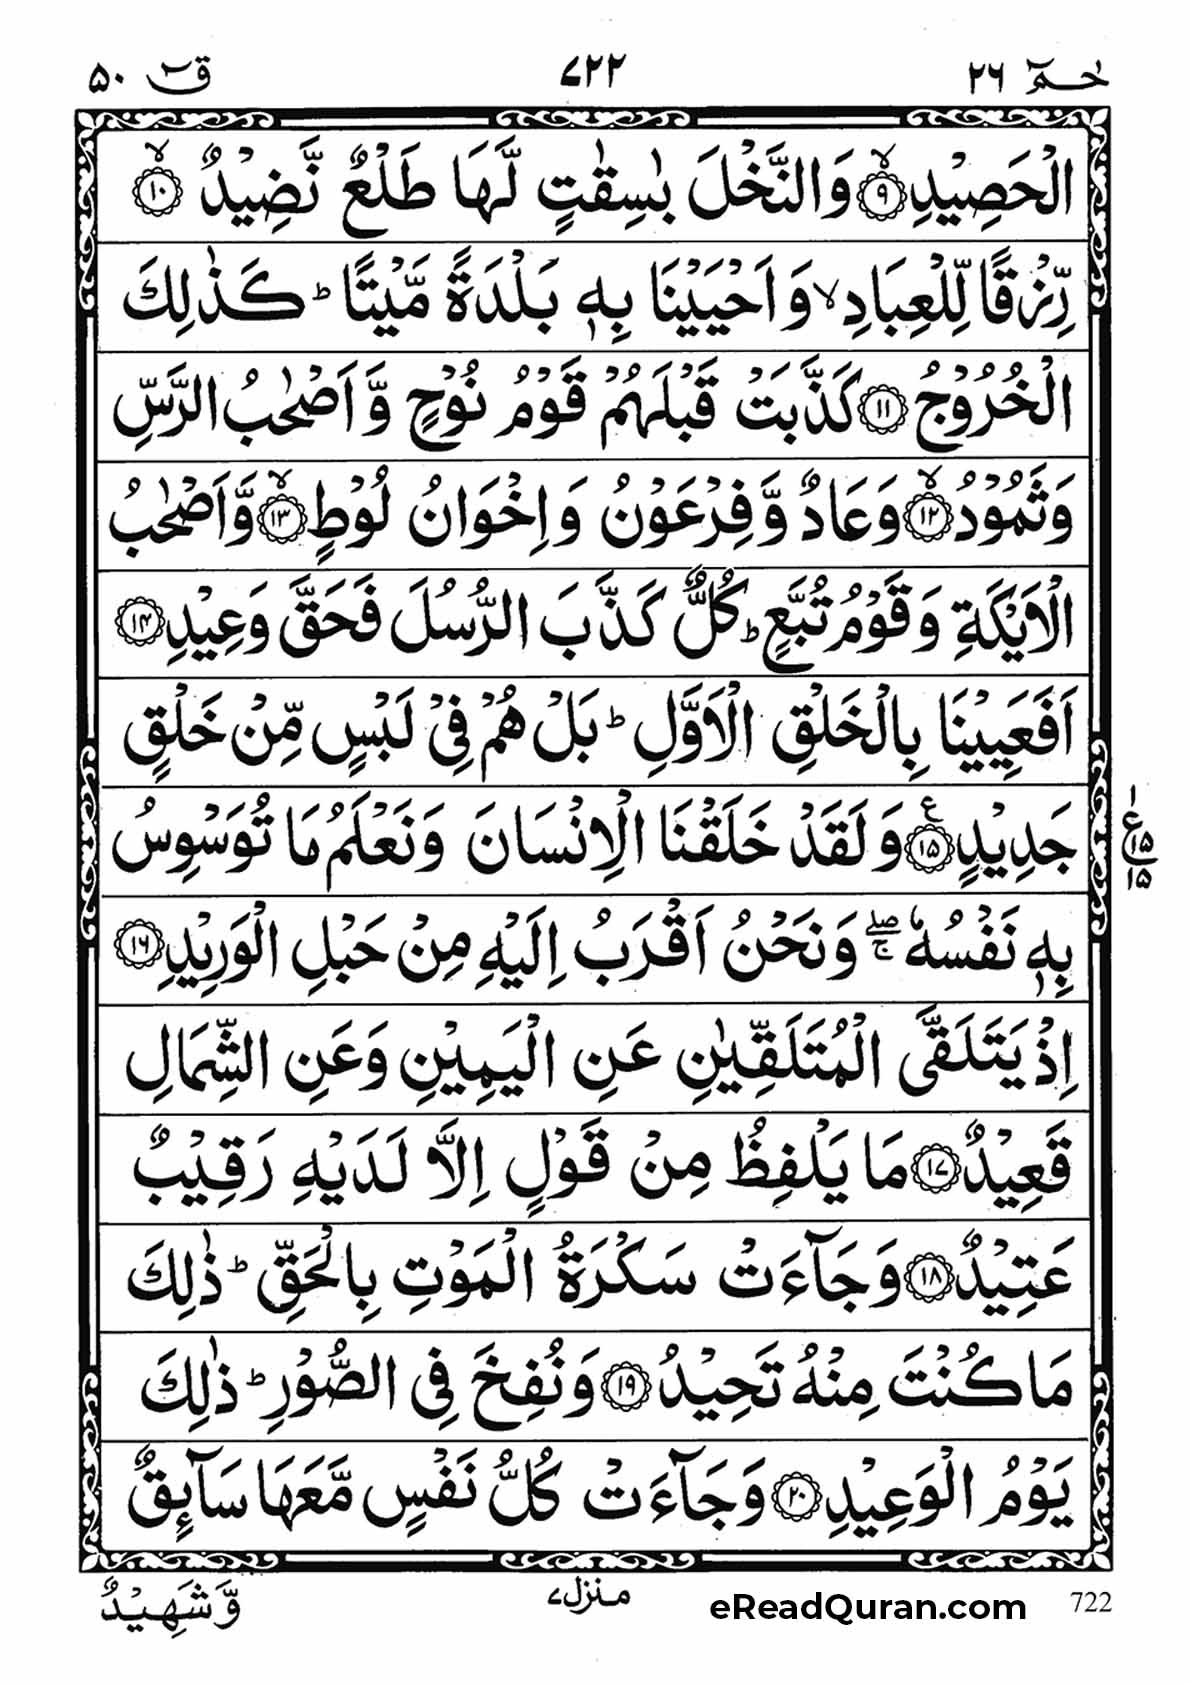 حٰمٓ ۲۶
۷۲۲
قٓ ۵۰
الْحَصِيْدِ ۙ﴿۹﴾ وَالنَّخْلَ بٰسِقٰتٍ لَّهَا طَلْعٌ نَّضِيْدٌ ۙ﴿۱۰﴾
رِّزْقًا لِّلْعِبَادِ ۙ وَاَحْيَيْنَا بِهٖ بَلْدَةً مَّيْتًا ؕ كَذٰلِكَ
الْخُرُوْجُ ﴿۱۱﴾ كَذَّبَتْ قَبْلَهُمْ قَوْمُ نُوْحٍ وَّاَصْحٰبُ الرَّسِّ
وَثَمُوْدُ ۙ﴿۱۲﴾ وَعَادٌ وَّفِرْعَوْنُ وَاِخْوَانُ لُوْطٍ ۙ﴿۱۳﴾ وَّاَصْحٰبُ
الْاَيْكَةِ وَقَوْمُ تُبَّعٍ ؕ كُلٌّ كَذَّبَ الرُّسُلَ فَحَقَّ وَعِيْدِ ﴿۱۴﴾
اَفَعَيِيْنَا بِالْخَلْقِ الْاَوَّلِ ؕ بَلْ هُمْ فِيْ لَبْسٍ مِّنْ خَلْقٍ
جَدِيْدٍ ﴿۱۵﴾ع وَلَقَدْ خَلَقْنَا الْاِنْسَانَ وَنَعْلَمُ مَا تُوَسْوِسُ
۱
ع۱۵
۱۵
بِهٖ نَفْسُهٗ ۖۚ وَنَحْنُ اَقْرَبُ اِلَيْهِ مِنْ حَبْلِ الْوَرِيْدِ ﴿۱۶﴾
اِذْ يَتَلَقَّى الْمُتَلَقِّيٰنِ عَنِ الْيَمِيْنِ وَعَنِ الشِّمَالِ
قَعِيْدٌ ﴿۱۷﴾ مَا يَلْفِظُ مِنْ قَوْلٍ اِلَّا لَدَيْهِ رَقِيْبٌ
عَتِيْدٌ ﴿۱۸﴾ وَجَآءَتْ سَكْرَةُ الْمَوْتِ بِالْحَقِّ ؕ ذٰلِكَ
مَا كُنْتَ مِنْهُ تَحِيْدُ ﴿۱۹﴾ وَنُفِخَ فِى الصُّوْرِ ؕ ذٰلِكَ
يَوْمُ الْوَعِيْدِ ﴿۲۰﴾ وَجَآءَتْ كُلُّ نَفْسٍ مَّعَهَا سَآئِقٌ
وَّشَهِيْدٌ
منزل ۷
eReadQuran.com
722